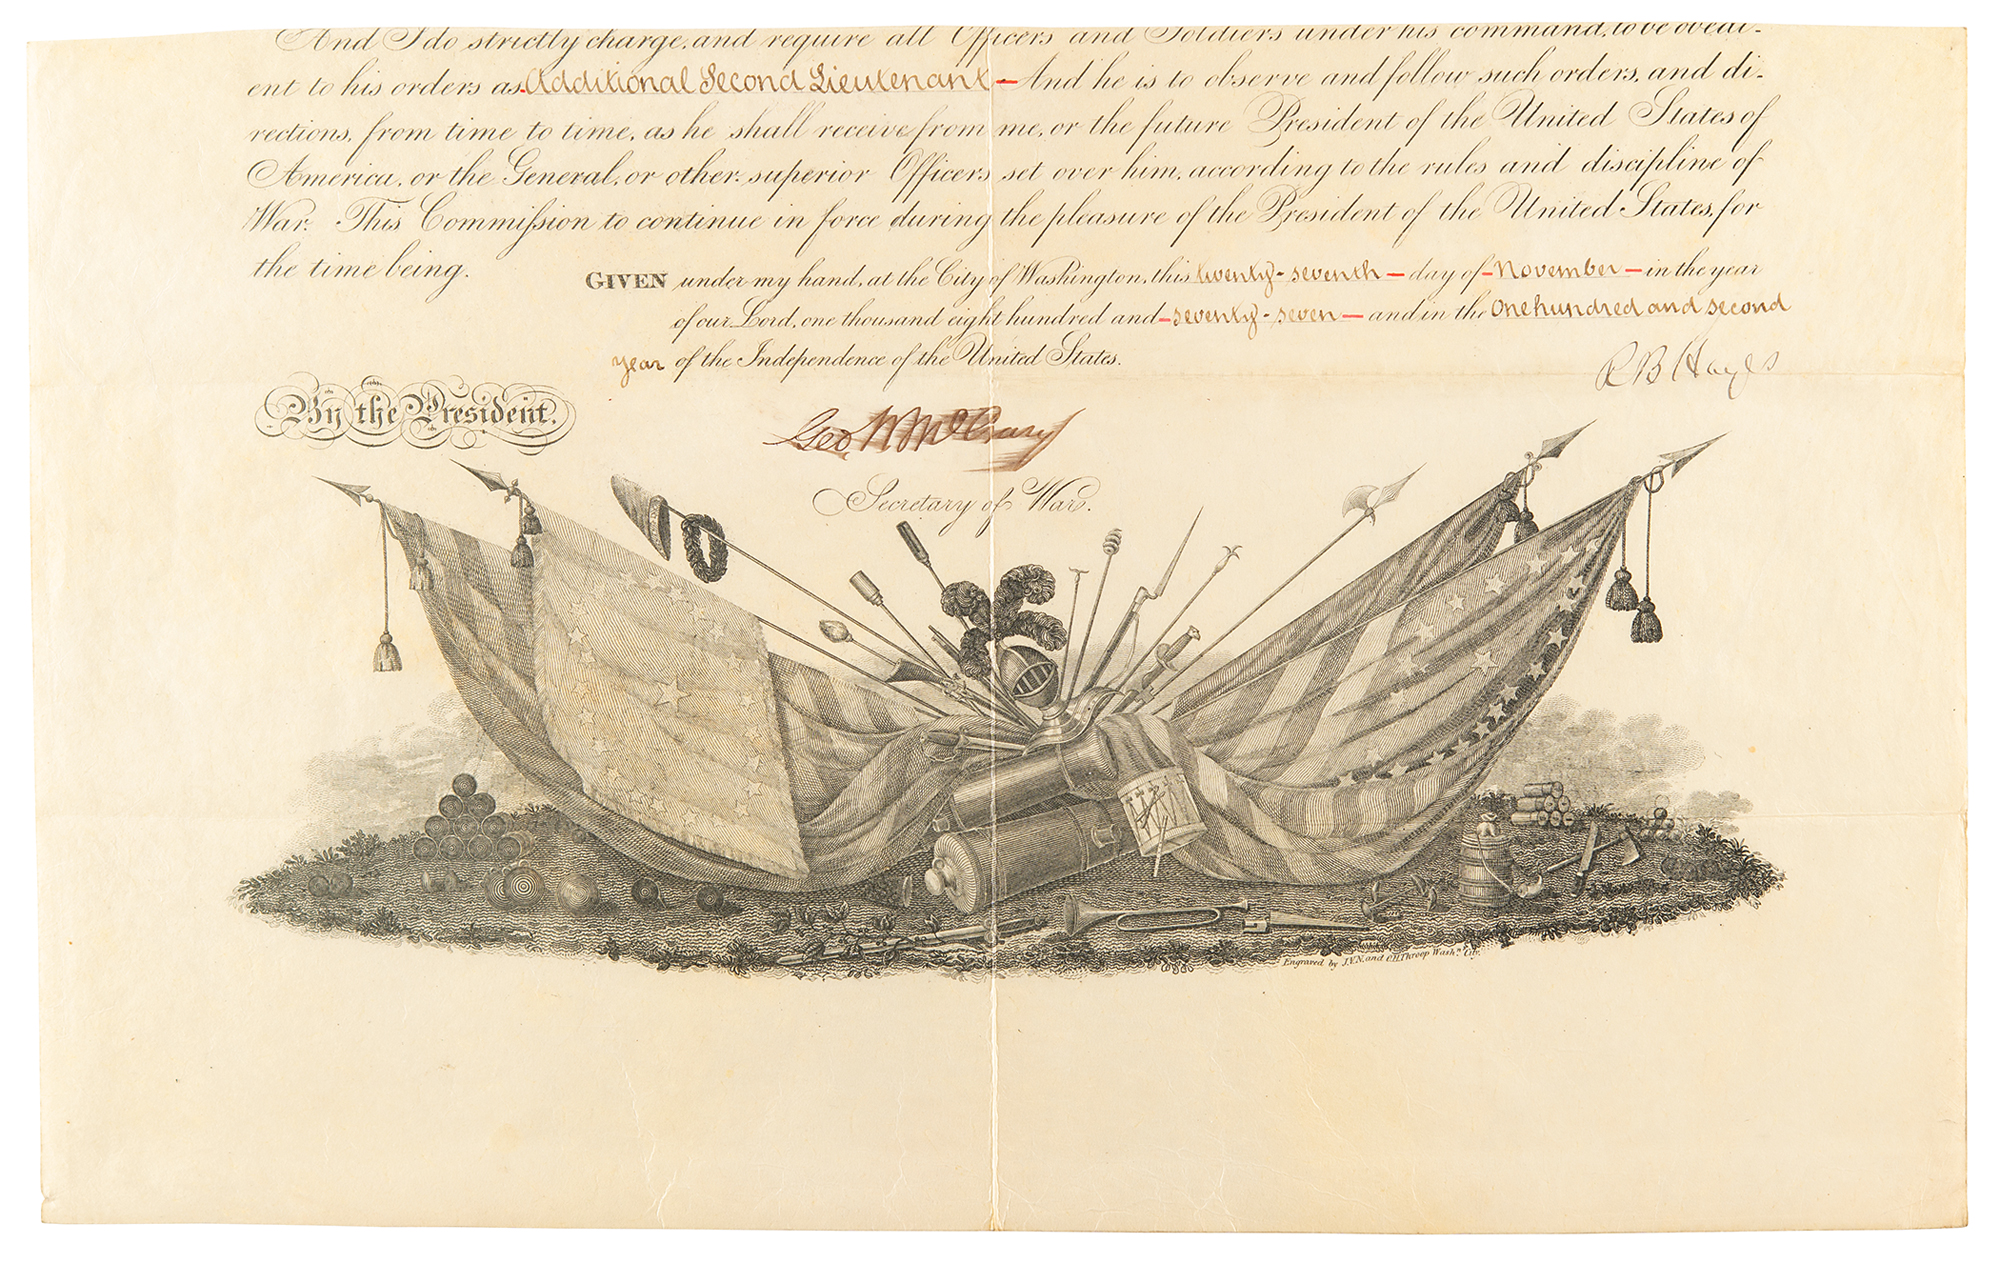 And I do strictly charge, and require all Officers and Soldiers under his command, to be obedi-
ent to his orders as Additional Second Lieutenant – And he is to observe and follow such orders, and di-
rections, from time to time, as he shall receive from me, or the future President of the United States of
America, or the General, or other superior Officers set over him, according to the rules and discipline of
War. This Commiſsion to continue in force during the pleasure of the President of the United States, for
the time being.
GIVEN under my hand, at the City of Washington, this twenty-seventh – day of – November – in the year
of our Lord, one thousand eight hundred and – seventy-seven – and in the One hundred and second
year of the Independence of the United States.
R B Hayes
By the President.
Geo W McCrary
Secretary of War.
Engraved by J.V.N. and O.H. Throop Washn. City.